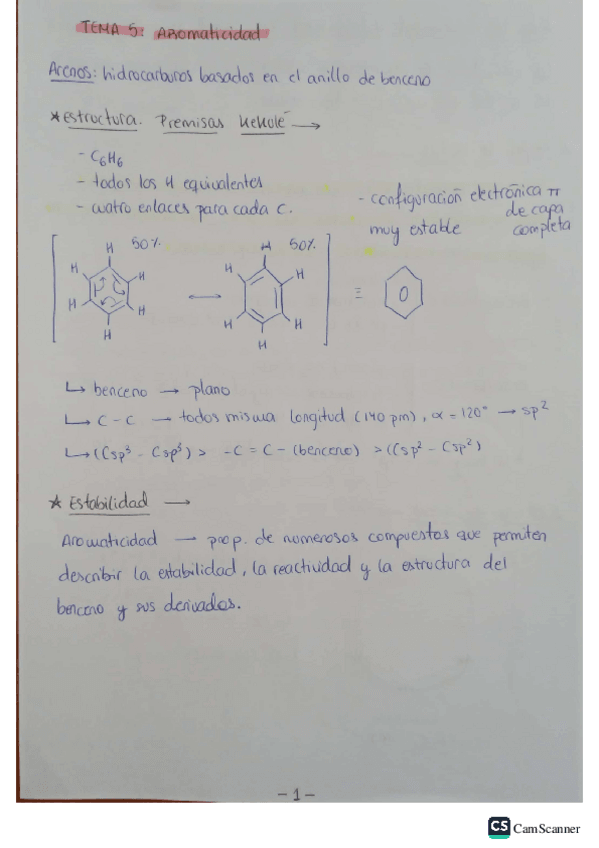 TEMA 5: Aromaticidad
Arenos: hidrocarburos basados en el anillo de benceno
* Estructura. Premisas Kekulé →
- C6H6
- todos los H equivalentes
- cuatro enlaces para cada C.
- configuración electrónica π
de capa
muy estable completa
H 50% H 50%
H H H H
↔ ≡ O
H H H H
H H
↳ benceno → plano
↳ C-C → todos misma longitud (140 pm), α = 120° → sp2
↳ (Csp3 - Csp3) > -C=C- (benceno) > (Csp2 - Csp2)
* Estabilidad →
Aromaticidad → prop. de numerosos compuestos que permiten
describir la estabilidad, la reactividad y la estructura del
benceno y sus derivados.
- 1 -
CS CamScanner